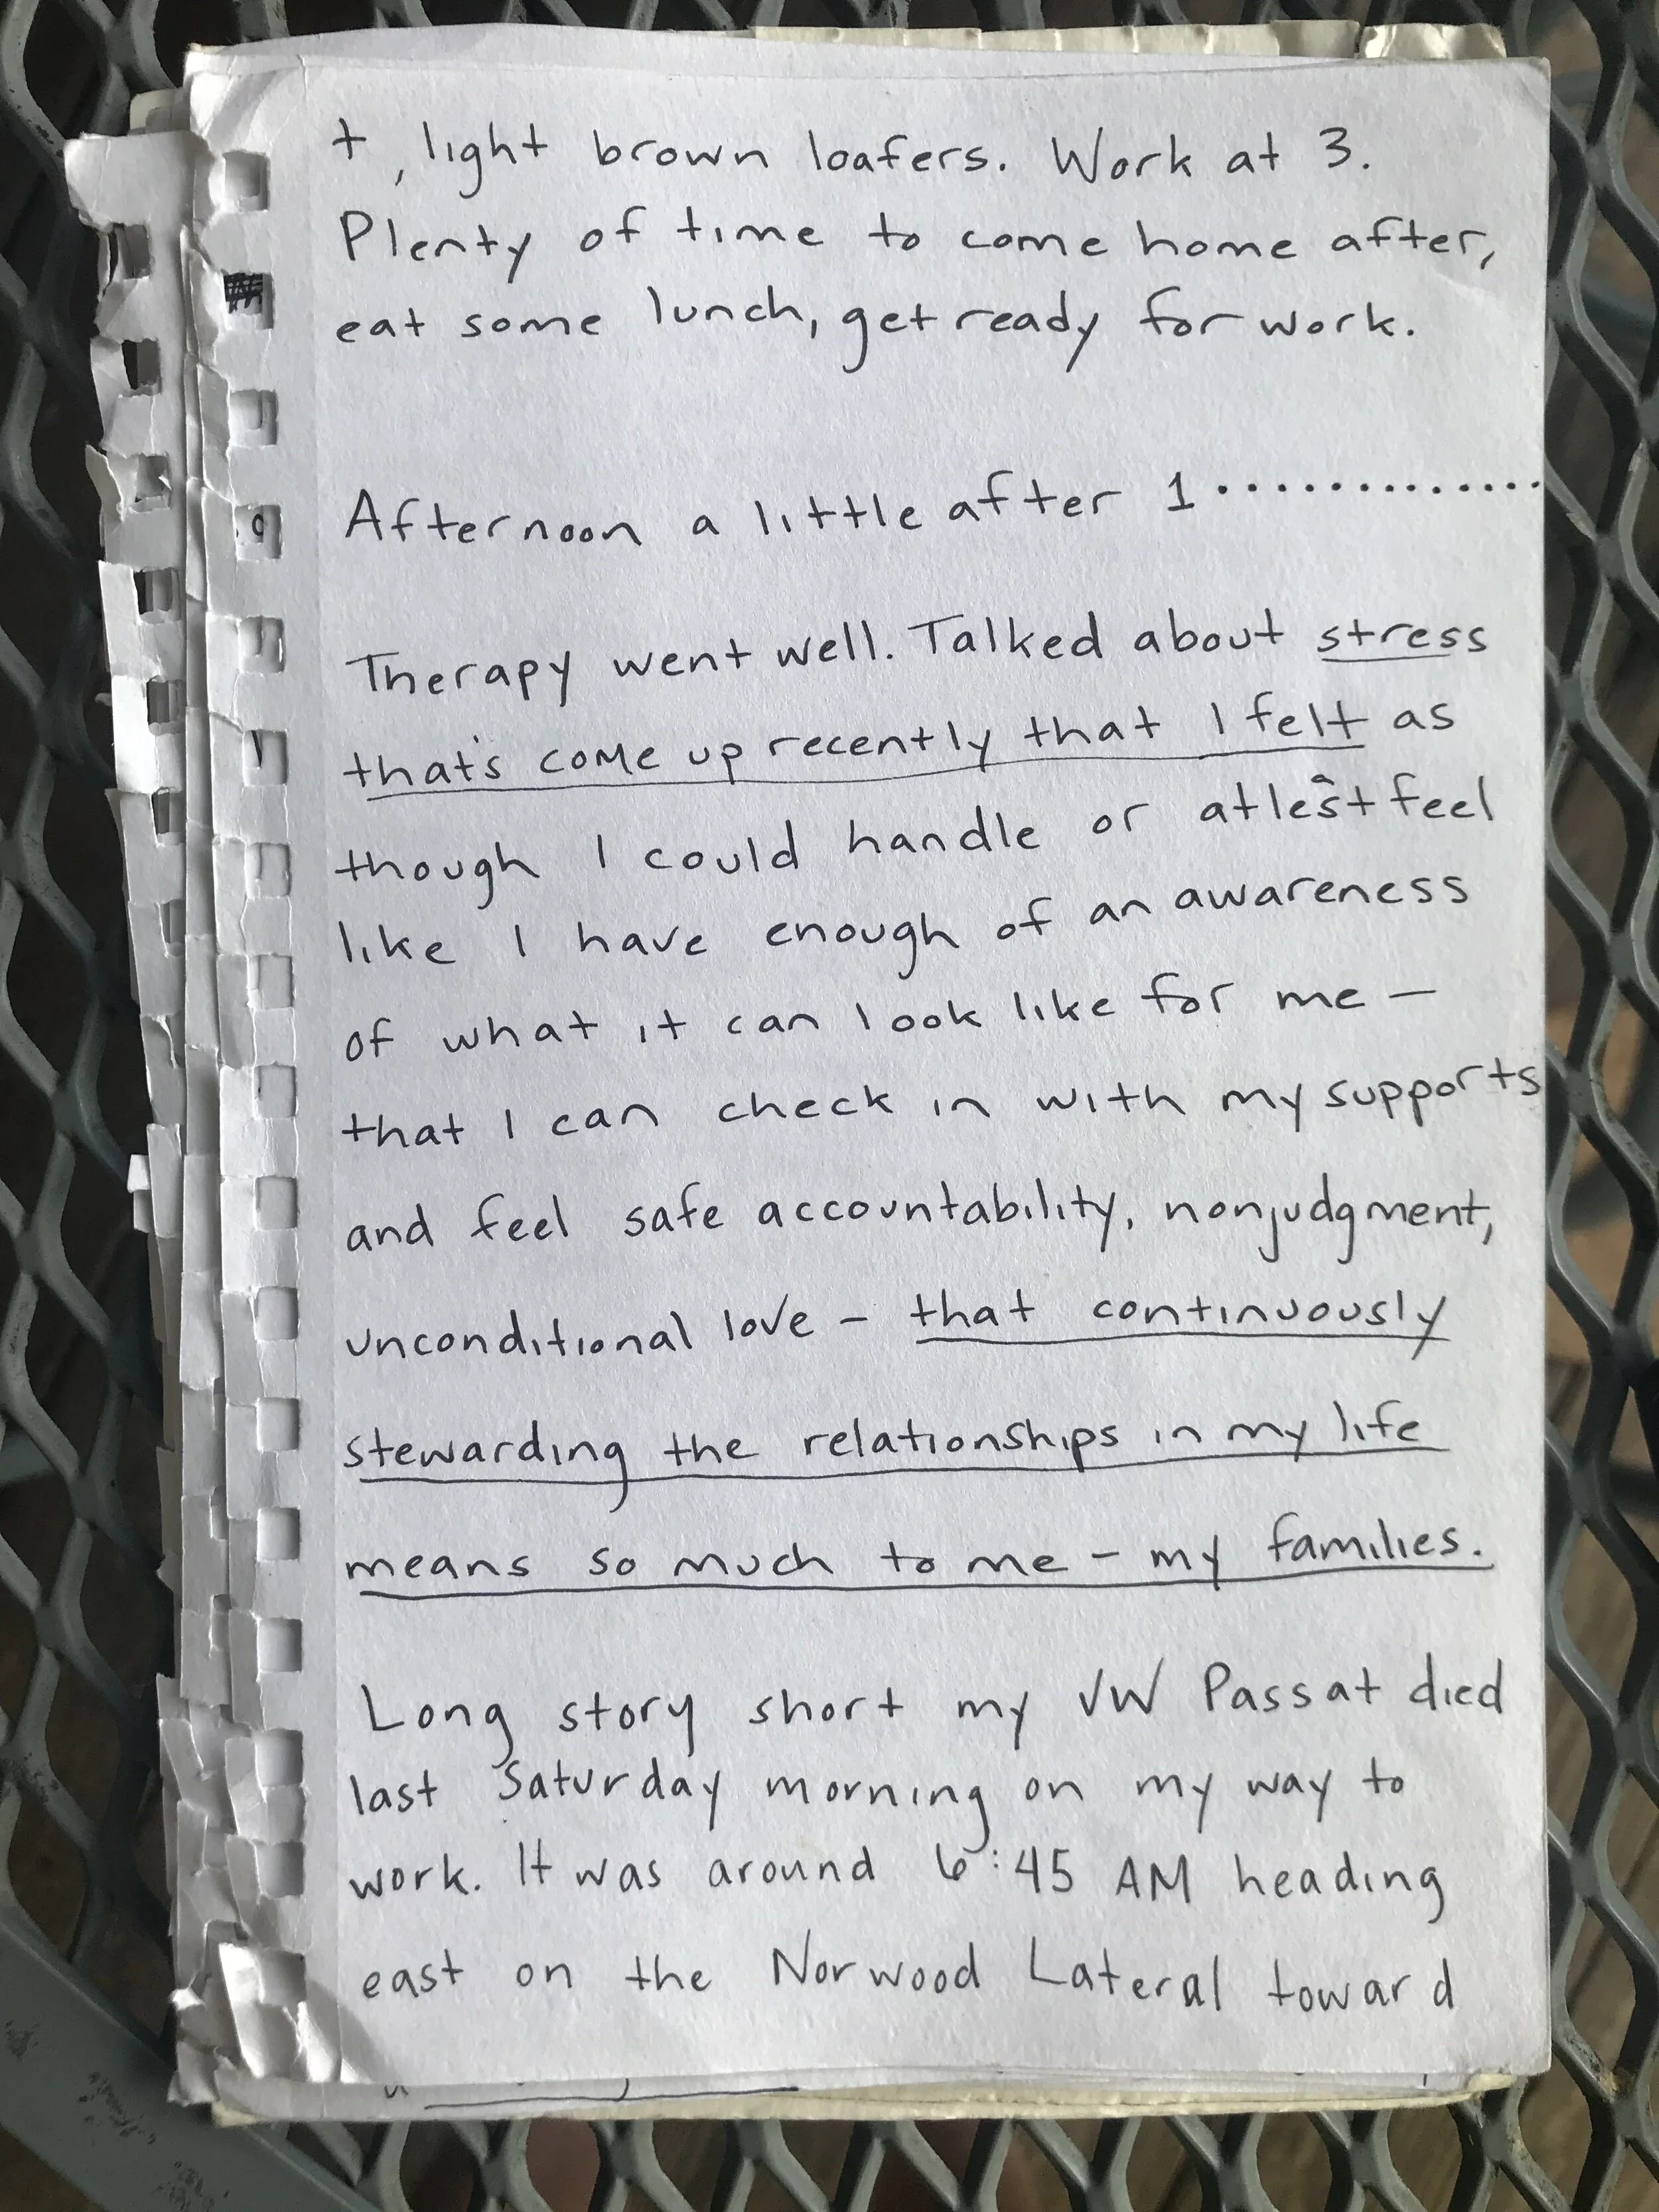 +, light brown loafers. Work at 3.
Plenty of time to come home after,
eat some lunch, get ready for work.
Afternoon a little after 1..............
Therapy went well. Talked about stress
that's come up recently that I felt as
though I could handle or atlest feel
like I have enough of an awareness
of what it can look like for me –
that I can check in with my supports
and feel safe accountability, nonjudgment,
unconditional love – that continuously
stewarding the relationships in my life
means so much to me – my families.
Long story short my VW Passat died
last Saturday morning on my way to
work. It was around 6:45 AM heading
east on the Norwood Lateral toward